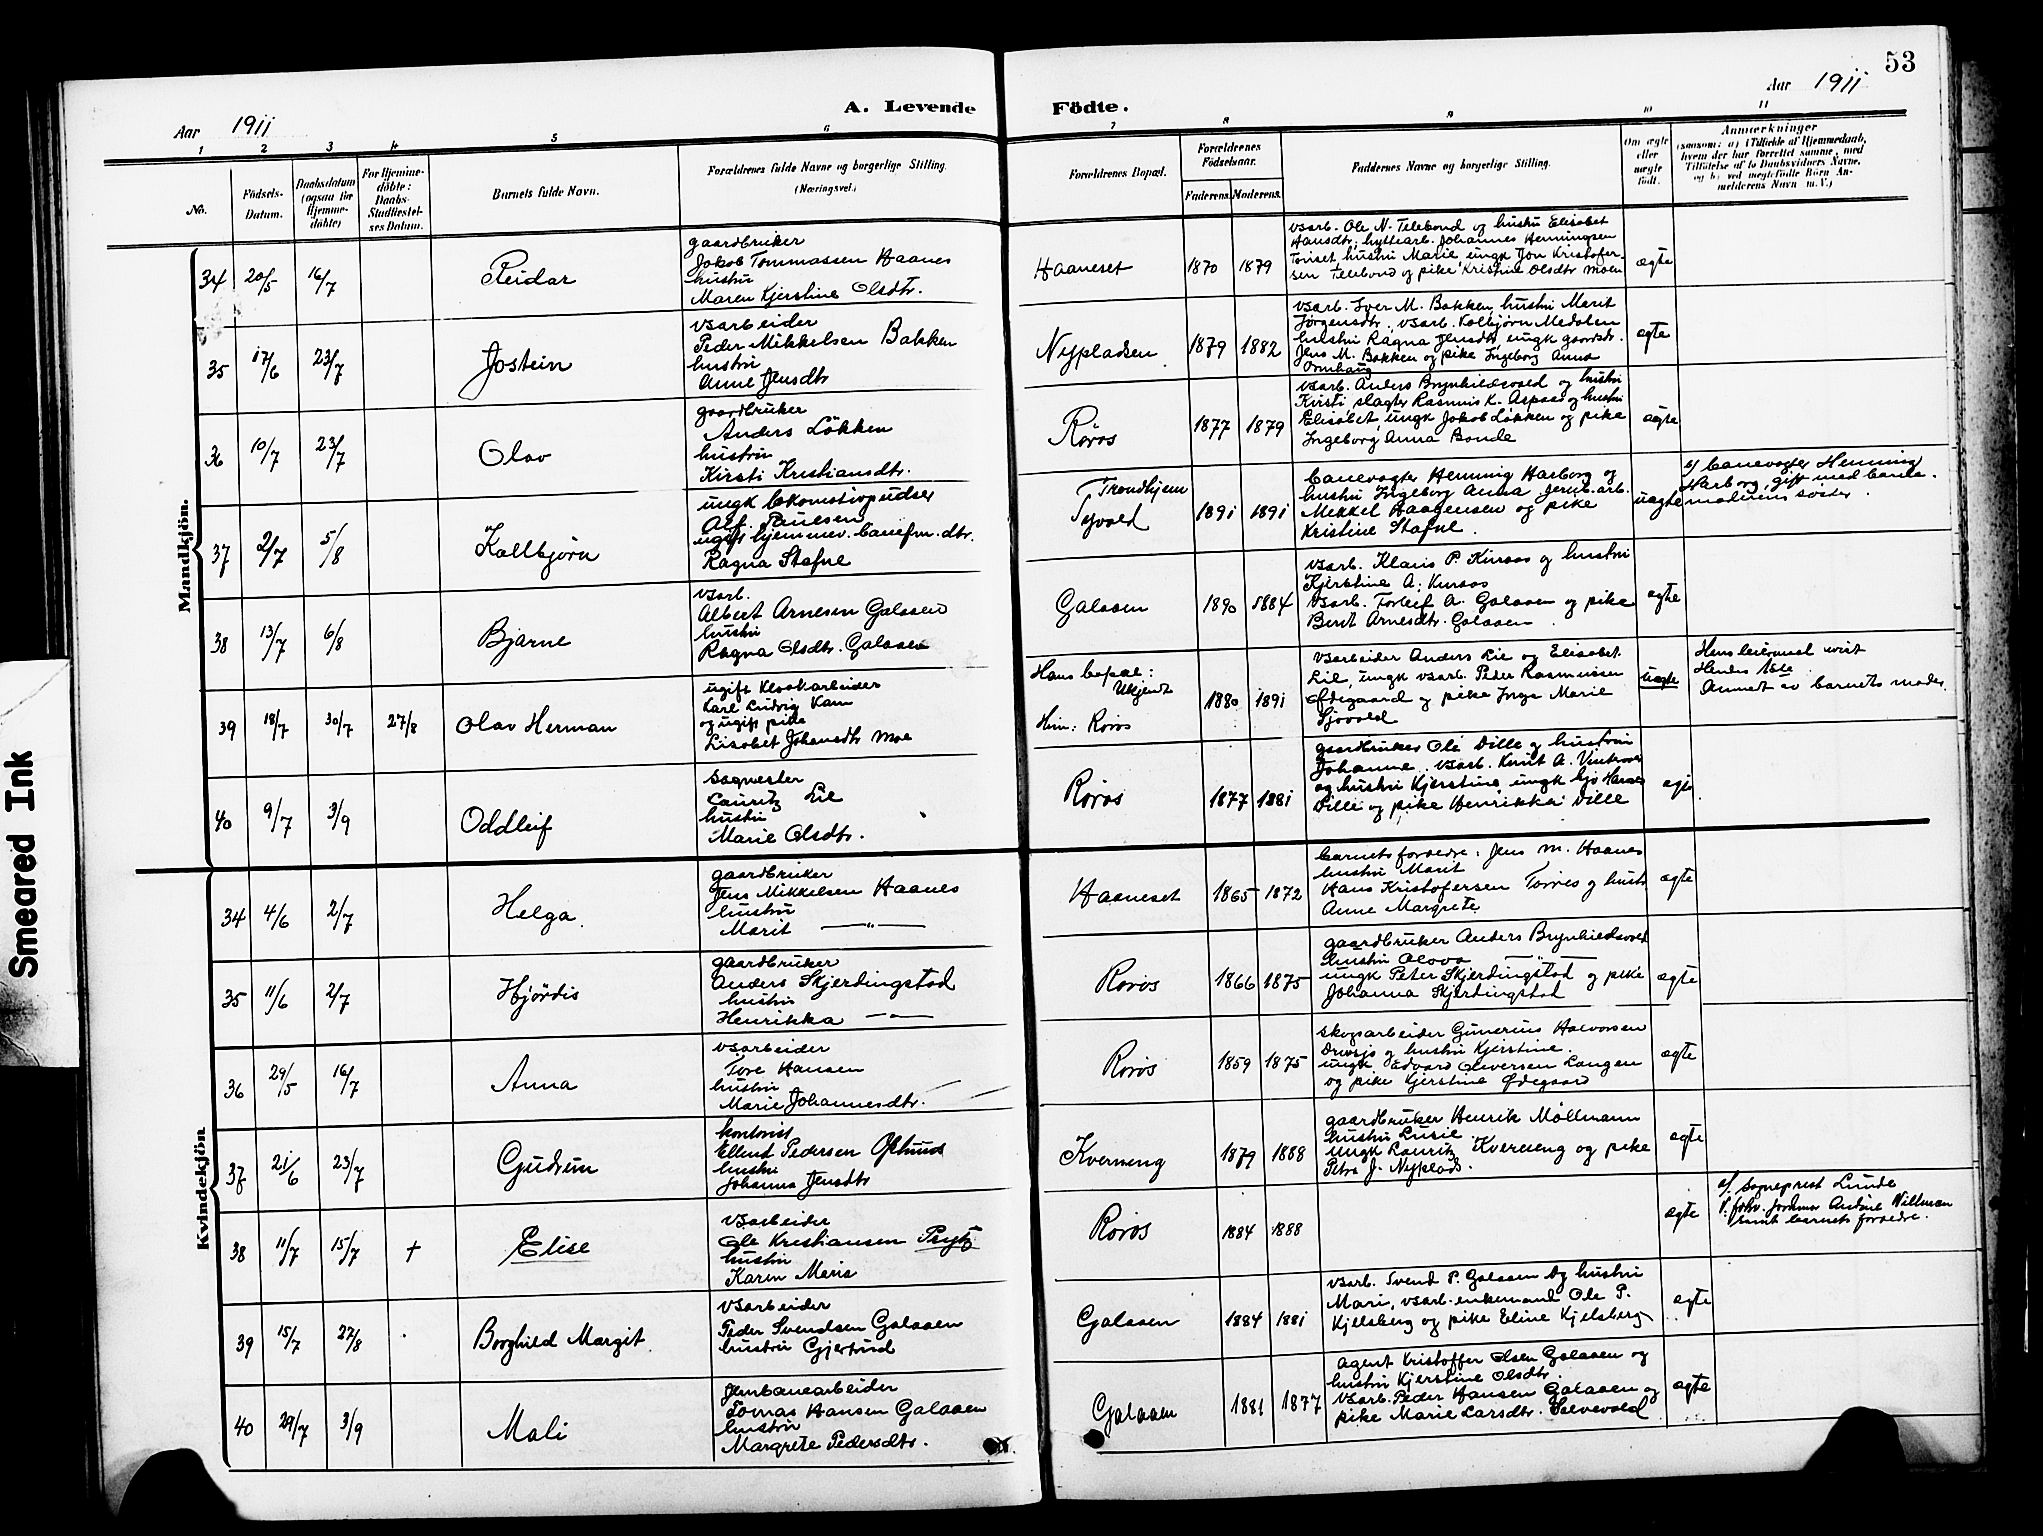 53
Aar 1911
A. Levende Födte.
Aar 1911
1 2 3 4 5 6 7 8 9 10 11
No.
Födsels-Datum.
Daabsdatum (ogsaa for Hjemme-döbte)
For Hjemme-döbte: Daabs-Stadfæstel-ses Datum.
Barnets fulde Navn.
Forældrenes fulde Navne og borgerlige Stilling.
(Næringsvei.)
Forældrenes Bopæl.
Forældrenes Födselsaar.
Faderens. Moderens.
Faddernes Navne og borgerlige Stilling.
Om ægte eller uægte födt.
Anmærkninger
(saasom: a) i Tilfælde af Hjemmedaab,
hvem der har forrettet samme, med
Tilföielse af to Daabsvidners Navne,
og b) ved uægtefödte Börn An-
melderens Navn m. V.)
Mandkjön.
34 20/5 16/7 Reidar
gaardbruker
Jokob Tommassen Haanes
hustru
Maren Kjerstine Olsdtr.
Haaneset 1870 1879
vsarb. Ole N. Telebond og hustru Elisabet
Hansdtr; hyttearb. Johannes Henningsen
Toriset hustru Marie ungk Jon Kristofer-
sen Telebond og pike Kristine Olsdtr Moen
ægte
35 17/6 23/7 Jostein
vsarbeider
Peder Mikkelsen Bakken
hustru
Anne Jensdtr
Nypladsen 1879 1882
vsarb. Iver M. Bakken, hustru Marit
Jørgensdtr, vsarb. Kolbjørn Medalen
hustru Ragna Jensdtr, ungk gaardbr.
Jens M. Bakken og pike Ingeborg Anna
Ormhaug
ægte
36 10/7 23/7 Olav
gaardbruker
Anders Løkken
hustru
Kirsti Kristiansdtr.
Røros 1877 1879
vsarb. Anders Brynhildsvold og hustru
Kirsti slagter Rasmus K. Aspaas og hustru
Elisabet, ungk Jokob Løkken og pike
Ingeborg Anna Bonde
ægte
37 2/7 5/8 Kolbjørn
ungk lokomotivpudser
Alf Paulsen
ugift hjemmev. banefm. dtr.
Ragna Stafne
Trondhjem
Tyvold
1891 1891
banevogter Henning Harborg og
hustru Ingeborg Anna Jernb.arb.
Mekkel Haagensen og pike
Kristine Stafne.
uægte
b/ banevogter Henning
Harborg, gift med barne-
moderens søster.
38 13/7 6/8 Bjarne
vsarb.
Albert Arnesen Galaaen
hustru
Ragna Olsdtr. Galaaen
Galaaen 1890 1884
vsarb. Klaus P. Kuraas og hustru
Kjerstine A. Kuraas
vsarb. Torleif A. Galaaen og pike
Berit Arnesdtr. Galaaen
ægte
39 18/7 30/7 27/8 Olav Herman
ugift Kloakarbeider
Karl Ludvig Kam
og ugift pike
Lisabet Johansdtr Moe
Hans bopæl:
Ukjendt
Hun: Røros
1880 1891
vsarbeider Anders Lie og Elisabet
Lie, ungk vsarb. Peder Rasmussen
Ødegaard og pike Inga Marie
Sjovold
uægte
Hans leiermaal uvist
Hendes 1ste
Anmeldt av barnets moder
40 9/7 3/9 Oddleif
sagmester
Lauritz Lie
hustru
Marie Olsdtr.
Røros 1877 1881
gaardbruker Ole Dille og hustru
Johanne, vsarb. Knut A. Vintervold
og hustru Kjerstine, ungk Hans
Dille og pike Henrikke Dille
ægte
Kvindekjön
34 4/6 2/7 Helga.
gaardbruker
Jens Mikkelsen Haanes
hustru
Marit —"—
Haaneset 1865 1872
barnets forældre: Jens M. Haanes
hustru Marit
Hans Kristofersen Torres og hustr
Anne Margrete
ægte
35 11/6 2/7 Hjørdis
gaardbruker
Anders Skjerdingstad
hustru
Henrikka —"—
Røros 1866 1875
gaardbruker Anders Brynhildsvold
hustru Olova —"—
ungk Peter Skjerdingstad og pike
Johanna Skjerdingstad
ægte
36 29/5 16/7 Anna
vsarbeider
Tore Hansen
hustru
Marie Johannesdtr.
Røros 1859 1875
skogsarbeider Gunerius Halvorsen
Drevsjø og hustru Kjerstine.
ungk Edvard Oliversen Langen
og pike Kjerstine Ødegaard
ægte
37 21/6 23/7 Gudrun
kontorist
Ellend Pedersen
hustru
Johanna Jensdtr
Kverneng 1879 1888
gaardbruker Henrik Møllmann
hustru Lusie
ungk Lauritz Kverneng og pike
Petra J. Nyplads.
ægte
38 11/7 15/7 + Elise
vsarbeider
Ole Kristiansen Prytz
hustru
Karen Marie
Røros 1884 1888
ægte
a/. sogneprest Lunde
v. forh. jordmor Andrine Willman
samt barnets forældre.
39 15/7 27/8 Borghild Margit
vsarbeider
Peder Svendsen Galaaen
hustru Gjertrud
Galaaen 1884 1881
vsarb. Svend P. Galaaen og hustru
Mari, vsarb. enkemand Ole P.
Kjelsberg og pike Eline Kjelsberg
ægte
40 29/7 3/9 Mali
Jernbanearbeider
Tomas Hansen Galaaen
hustru
Margrete Pedersdtr.
Galaaen 1881 1877
agent Kristoffer Olsen Galaaen og
hustru Kjerstine Olsdtr.
vsarb. Peder Hansen Galaaen og
pike Marie Larsdtr. Solvevold
ægte
Smeared Ink